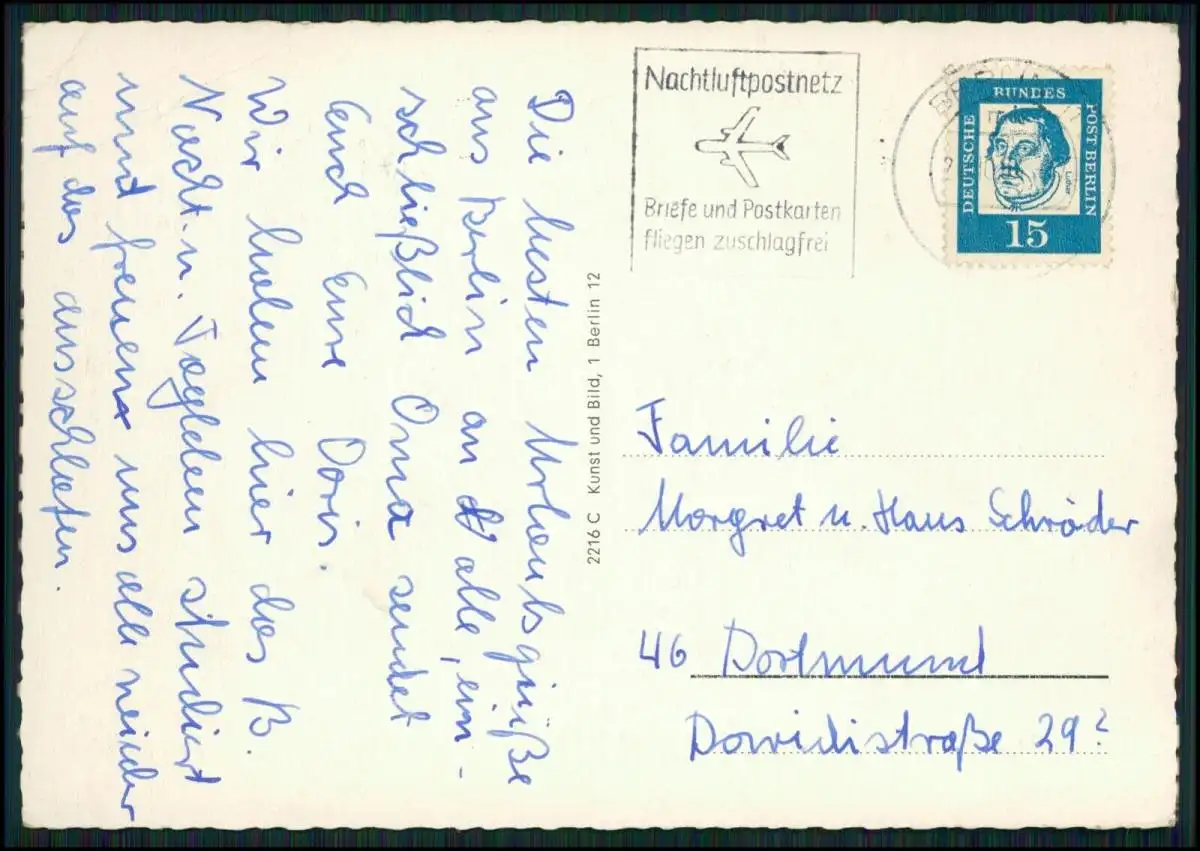 Die besten Urlaubsgrüße
aus Berlin an alle, ein-
schließlich Oma sendet
Euch Eure Doris.
Wir haben hier das B.
Nacht- u. Tagleben studiert
und freuen uns alle wieder
auf das ausschlafen.
2216 C Kunst und Bild, 1 Berlin 12
Nachtluftpostnetz
Briefe und Postkarten
fliegen zuschlagfrei
BERLIN
DEUTSCHE BUNDESPOST BERLIN
Luther
15
Familie
Margret u. Hans Schröder
46 Dortmund
Dawidistraße 29?